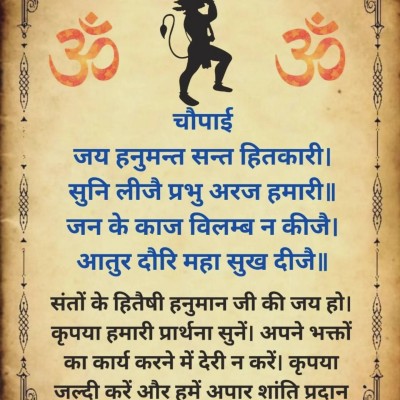 ॐ ॐ
चौपाई
जय हनुमन्त सन्त हितकारी।
सुनि लीजै प्रभु अरज हमारी॥
जन के काज विलम्ब न कीजै।
आतुर दौरि महा सुख दीजै॥
संतों के हितैषी हनुमान जी की जय हो।
कृपया हमारी प्रार्थना सुनें। अपने भक्तों
का कार्य करने में देरी न करें। कृपया
जल्दी करें और हमें अपार शांति प्रदान